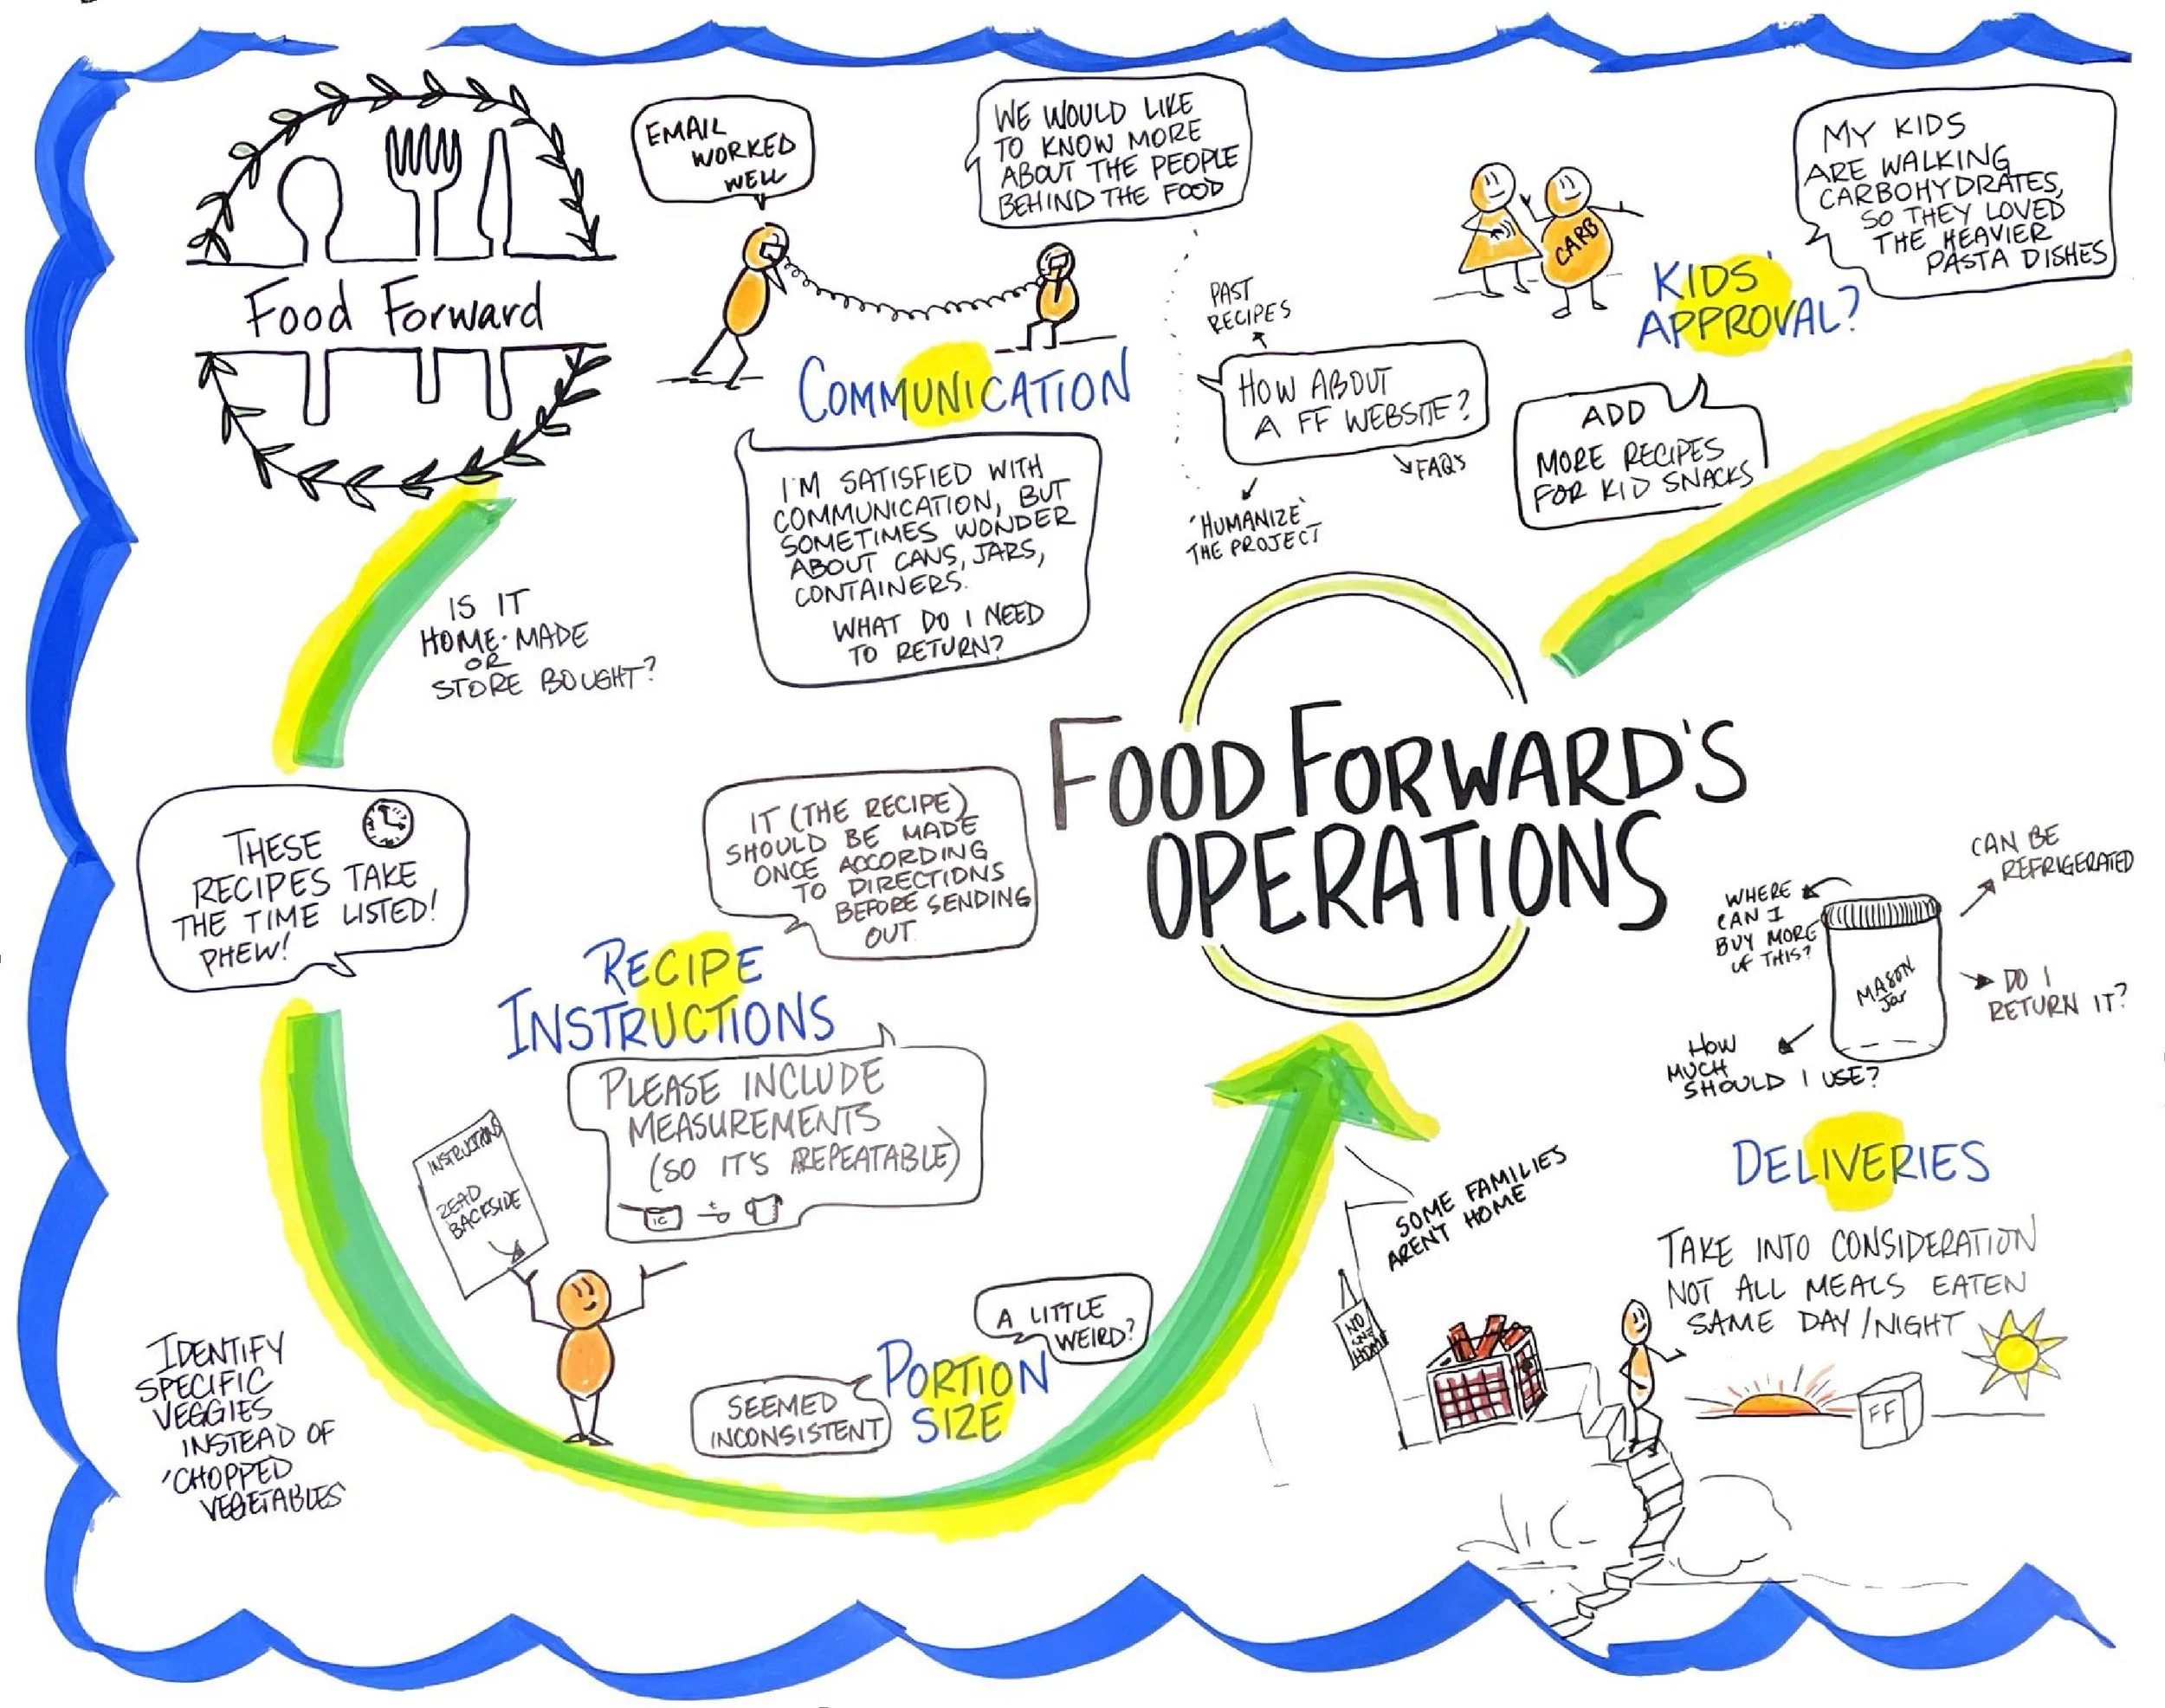 Food Forward
EMAIL
WORKED
WELL
WE WOULD LIKE
TO KNOW MORE
ABOUT THE PEOPLE
BEHIND THE FOOD
COMMUNICATION
I'M SATISFIED WITH
COMMUNICATION, BUT
SOMETIMES WONDER
ABOUT CANS, JARS,
CONTAINERS.
WHAT DO I NEED
TO RETURN?
PAST
RECIPES
HOW ABOUT
A FF WEBSITE?
FAQs
'HUMANIZE'
THE PROJECT
CARB
KIDS'
APPROVAL?
MY KIDS
ARE WALKING
CARBOHYDRATES,
SO THEY LOVED
THE HEAVIER
PASTA DISHES
ADD
MORE RECIPES
FOR KID SNACKS
IS IT
HOME-MADE
OR
STORE BOUGHT?
FOOD FORWARD'S
OPERATIONS
THESE
RECIPES TAKE
THE TIME LISTED!
PHEW!
IT (THE RECIPE)
SHOULD BE MADE
ONCE ACCORDING
TO DIRECTIONS
BEFORE SENDING
OUT
RECIPE
INSTRUCTIONS
PLEASE INCLUDE
MEASUREMENTS
(SO IT'S REPEATABLE)
1C
t
INSTRUCTIONS
READ
BACKSIDE
IDENTIFY
SPECIFIC
VEGGIES
INSTEAD OF
'CHOPPED
VEGETABLES'
A LITTLE
WEIRD?
PORTION
SIZE
SEEMED
INCONSISTENT
WHERE
CAN I
BUY MORE
OF THIS?
CAN BE
REFRIGERATED
MASON
Jar
DO I
RETURN IT?
HOW
MUCH
SHOULD I USE?
DELIVERIES
SOME FAMILIES
AREN'T HOME
NO
ONE
HOME
TAKE INTO CONSIDERATION
NOT ALL MEALS EATEN
SAME DAY/NIGHT
FF